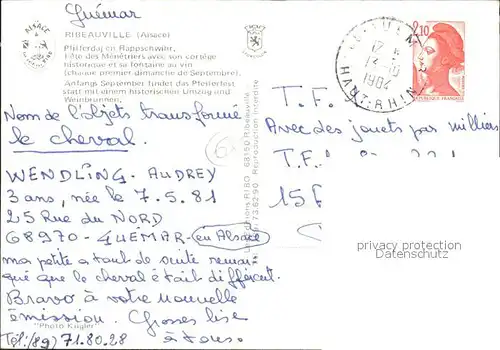 Guémar
ALSACE
RIBEAUVILLE (Alsace)
Pfifferdaj en Rappschwihr,
Fête des Ménétriers avec son cortège
historique et sa fontaine au vin
(chaque premier dimanche de Septembre).
Anfangs September findet das Pfeiferfest
statt mit einem historischen Umzug und
Weinbrunnen.
Nom de l'objets transformé
le cheval.
WENDLING - AUDREY
3 ans, née le 7.5.81
25 Rue du NORD
68970 - GUÉMAR - en Alsace
ma petite a tout de suite remar-
qué que le cheval était différent.
Bravo à votre nouvelle
émission. Grosses bise
à tous.
"Photo Kugler"
Tél: (89) 71.80.28
6
Editions RIBO - 68150 Ribeauvillé
73.62.90 - Reproduction interdite
12 H
1984
HAUT-RHIN
2,10
REPUBLIQUE FRANÇAISE
T. F.
Avec des jouets par milliers
T. F.
15 F
privacy protection
Datenschutz